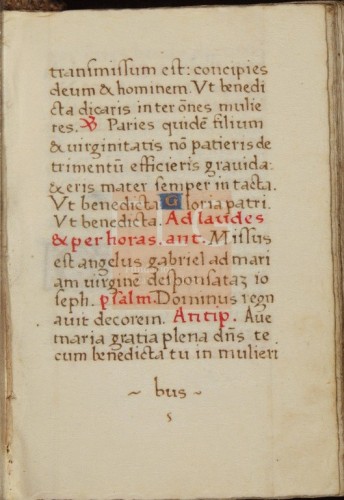 transmissum est: concipies
deum & hominem. Vt benedi
cta dicaris inter ōnes mulie
res. ℣ Paries quidē filium
& uirginitatis nō patieris de
trimentū efficieris grauida:
& eris mater semper intacta.
Vt benedicta Gloria patri.
Vt benedicta. Ad laudes
& per horas. ant. Missus
est angelus gabriel ad mari
am uirginē desponsataz io
seph. psalm. Dominus regn
auit decorem. Antip. Aue
maria gratia plena dn̄s te
cum benedicta tu in mulieri
~ bus ~